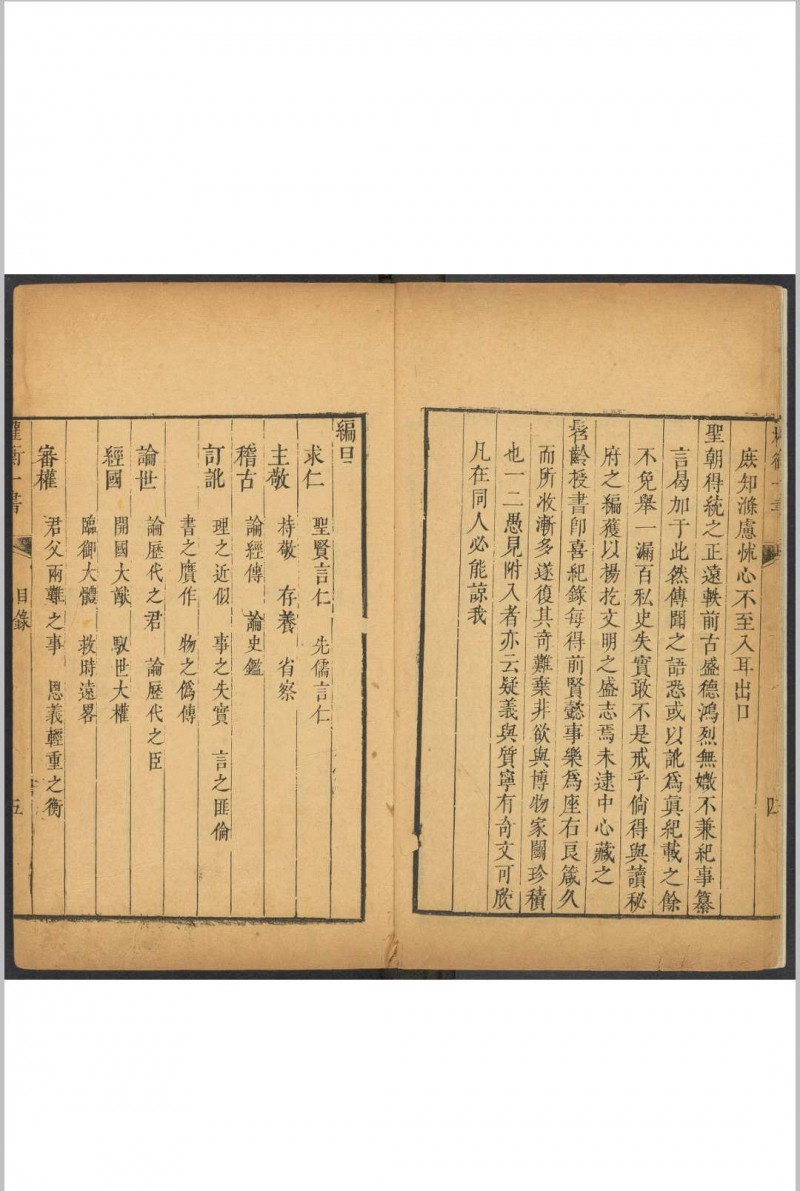 庻知滌慮怵心不至入耳出口
聖朝得統之正遠軼前古盛德鴻烈無媺不兼紀事纂
言曷加于此然傳聞之語悉或以訛爲眞紀載之餘
不免舉一漏百私史失實敢不是戒乎倘得與讀秘
府之編獲以揚扢文明之盛志焉未逮中心藏之
髫齡授書卽喜紀錄每得前賢懿事樂爲座右良箴久
而所收漸多遂復其奇難棄非欲與博物家鬬珍積
也一二愚見附入者亦云疑義與質寧有奇文可欣
凡在同人必能諒我
四
編目
求仁 聖賢言仁 先儒言仁
主敬 持敬 存養 省察
稽古 論經傳 論史鑑
訂訛 理之近似 事之失實 言之匪倫
書之贋作 物之僞傳
論世 論歷代之君 論歷代之臣
經國 開國大猷 馭世大權
臨御大體 救時遠畧
審權 君父兩難之事 恩義輕重之衡
權衡一書 目錄 五